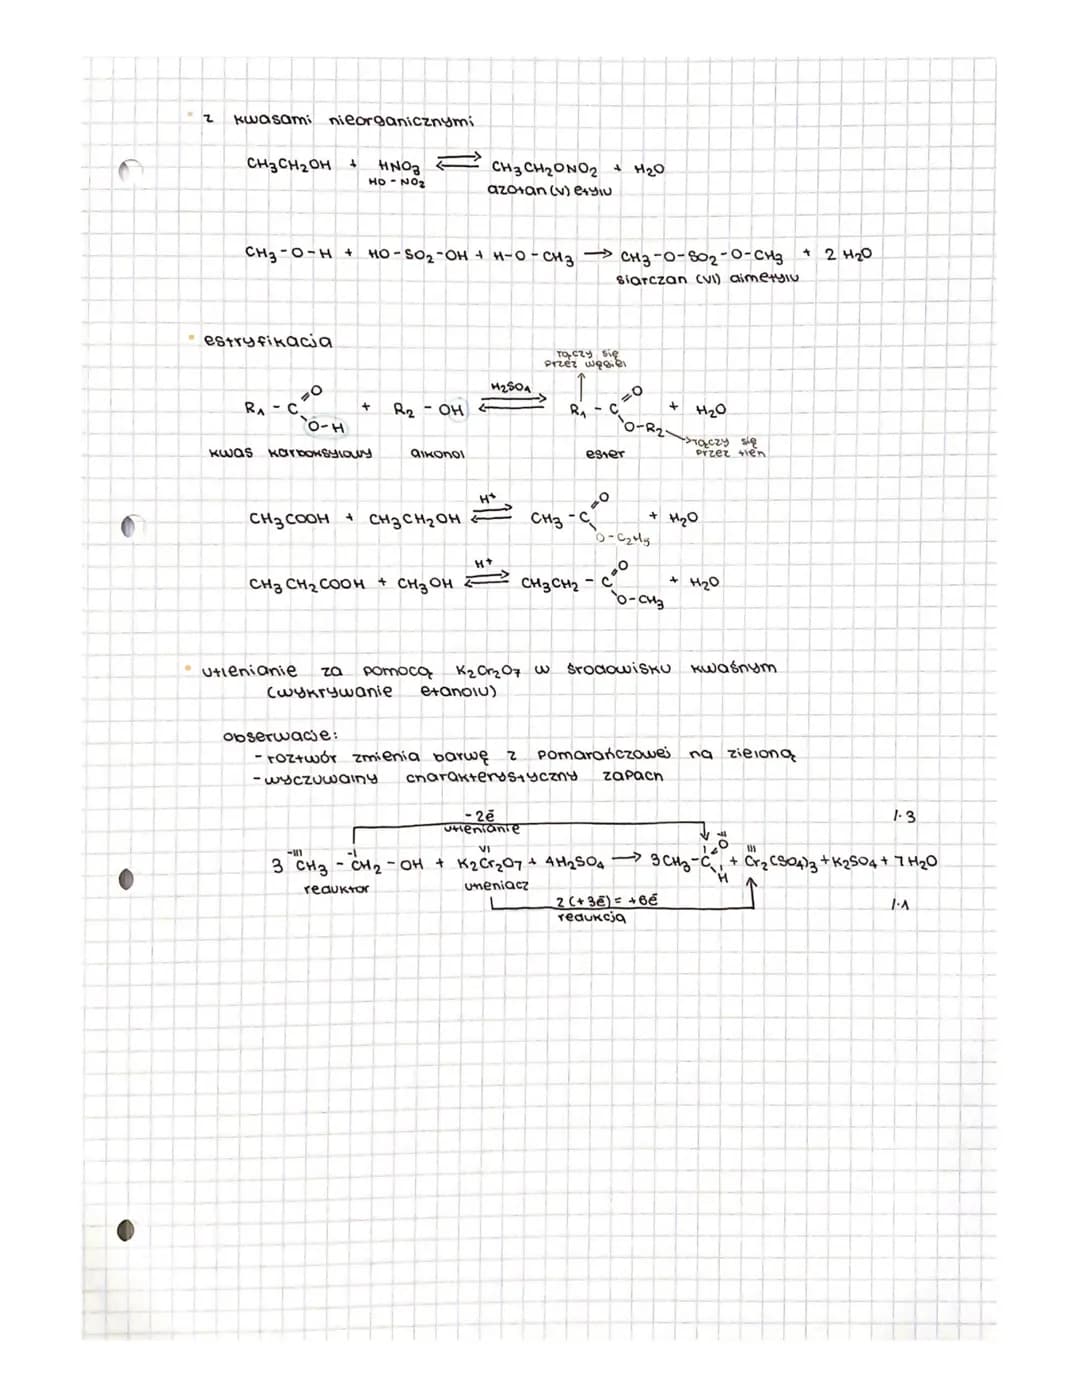 • z kwasami nieorganicznymi
CH3CH2OH + HNO3 ⇌ CH3CH2ONO2 + H2O
HO-NO2 azotan(V) etylu
CH3-O-H + HO-SO2-OH + H-O-CH3 → CH3-O-SO2-O-CH3 + 2 H2O
siarczan (VI) dimetylu
• estryfikacja
łączy się
przez węgiel
R1 - C =O O-H + R2 - OH ⇌ H2SO4 R1 - C =O O-R2 + H2O
łączy się
przez tlen
kwas karboksylowy alkohol ester
CH3COOH + CH3CH2OH ⇌ H+ CH3 - C =O O-C2H5 + H2O
CH3CH2COOH + CH3OH ⇌ H+ CH3CH2 - C =O O-CH3 + H2O
• utlenianie za pomocą K2Cr2O7 w środowisku kwaśnym
(wykrywanie etanolu)
obserwacje:
- roztwór zmienia barwę z pomarańczowej na zieloną
- wyczuwalny charakterystyczny zapach
-2ē |·3
utlenianie
-III -I VI I -II III
3 CH3 - CH2 - OH + K2Cr2O7 + 4H2SO4 → 3CH3-C =O H + Cr2(SO4)3 + K2SO4 + 7H2O
reduktor utleniacz
2(+3ē) = +6ē |·1
redukcja